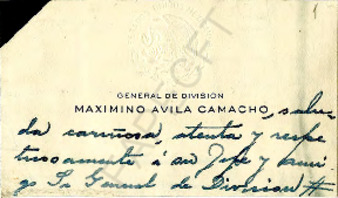 1
GENERAL DE DIVISION
MAXIMINO AVILA CAMACHO, salu-
da cariñosa, atenta y respe
tuosamente á su Jefe y ami-
go Sr. General de Division #